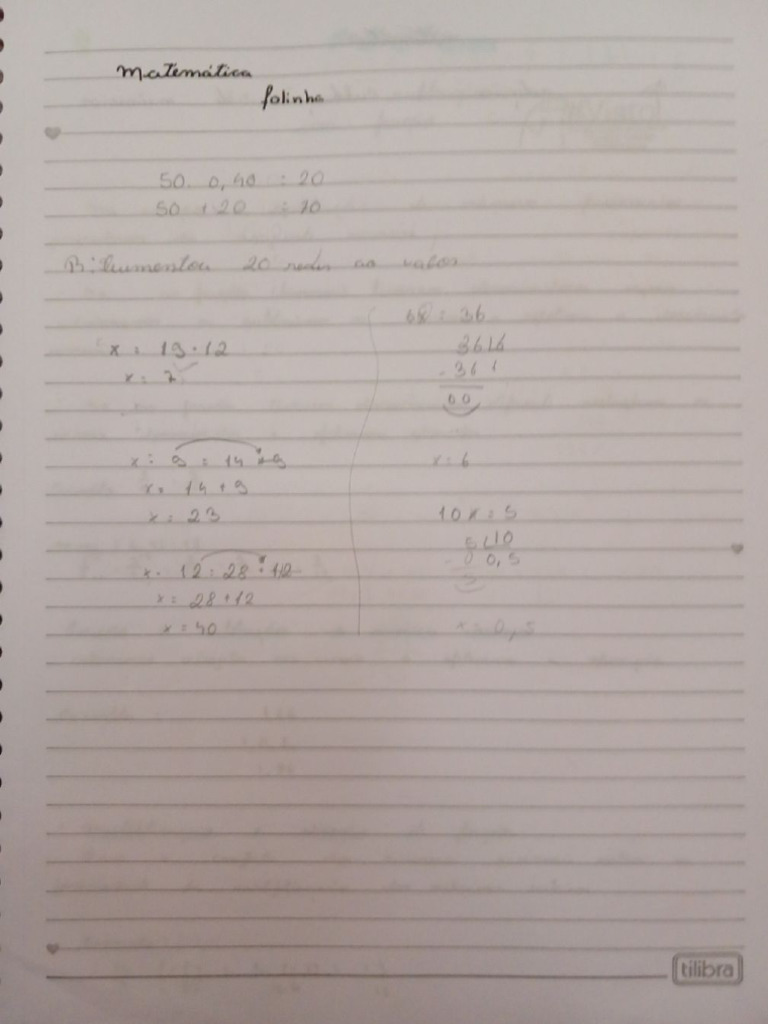 Matemática
folinha
50. 0,40 = 20
50 + 20 = 70
R: Aumentou 20 reais ao valor
x = 19 - 12
x = 7
x - 9 = 14 + 9
x = 14 + 9
x = 23
x - 12 = 28 + 12
x = 28 + 12
x = 40
= 36
36 6
- 36
00
x = 6
10 x = 5
5 10
- 0 0,5
5
x = 0,5
tilibra